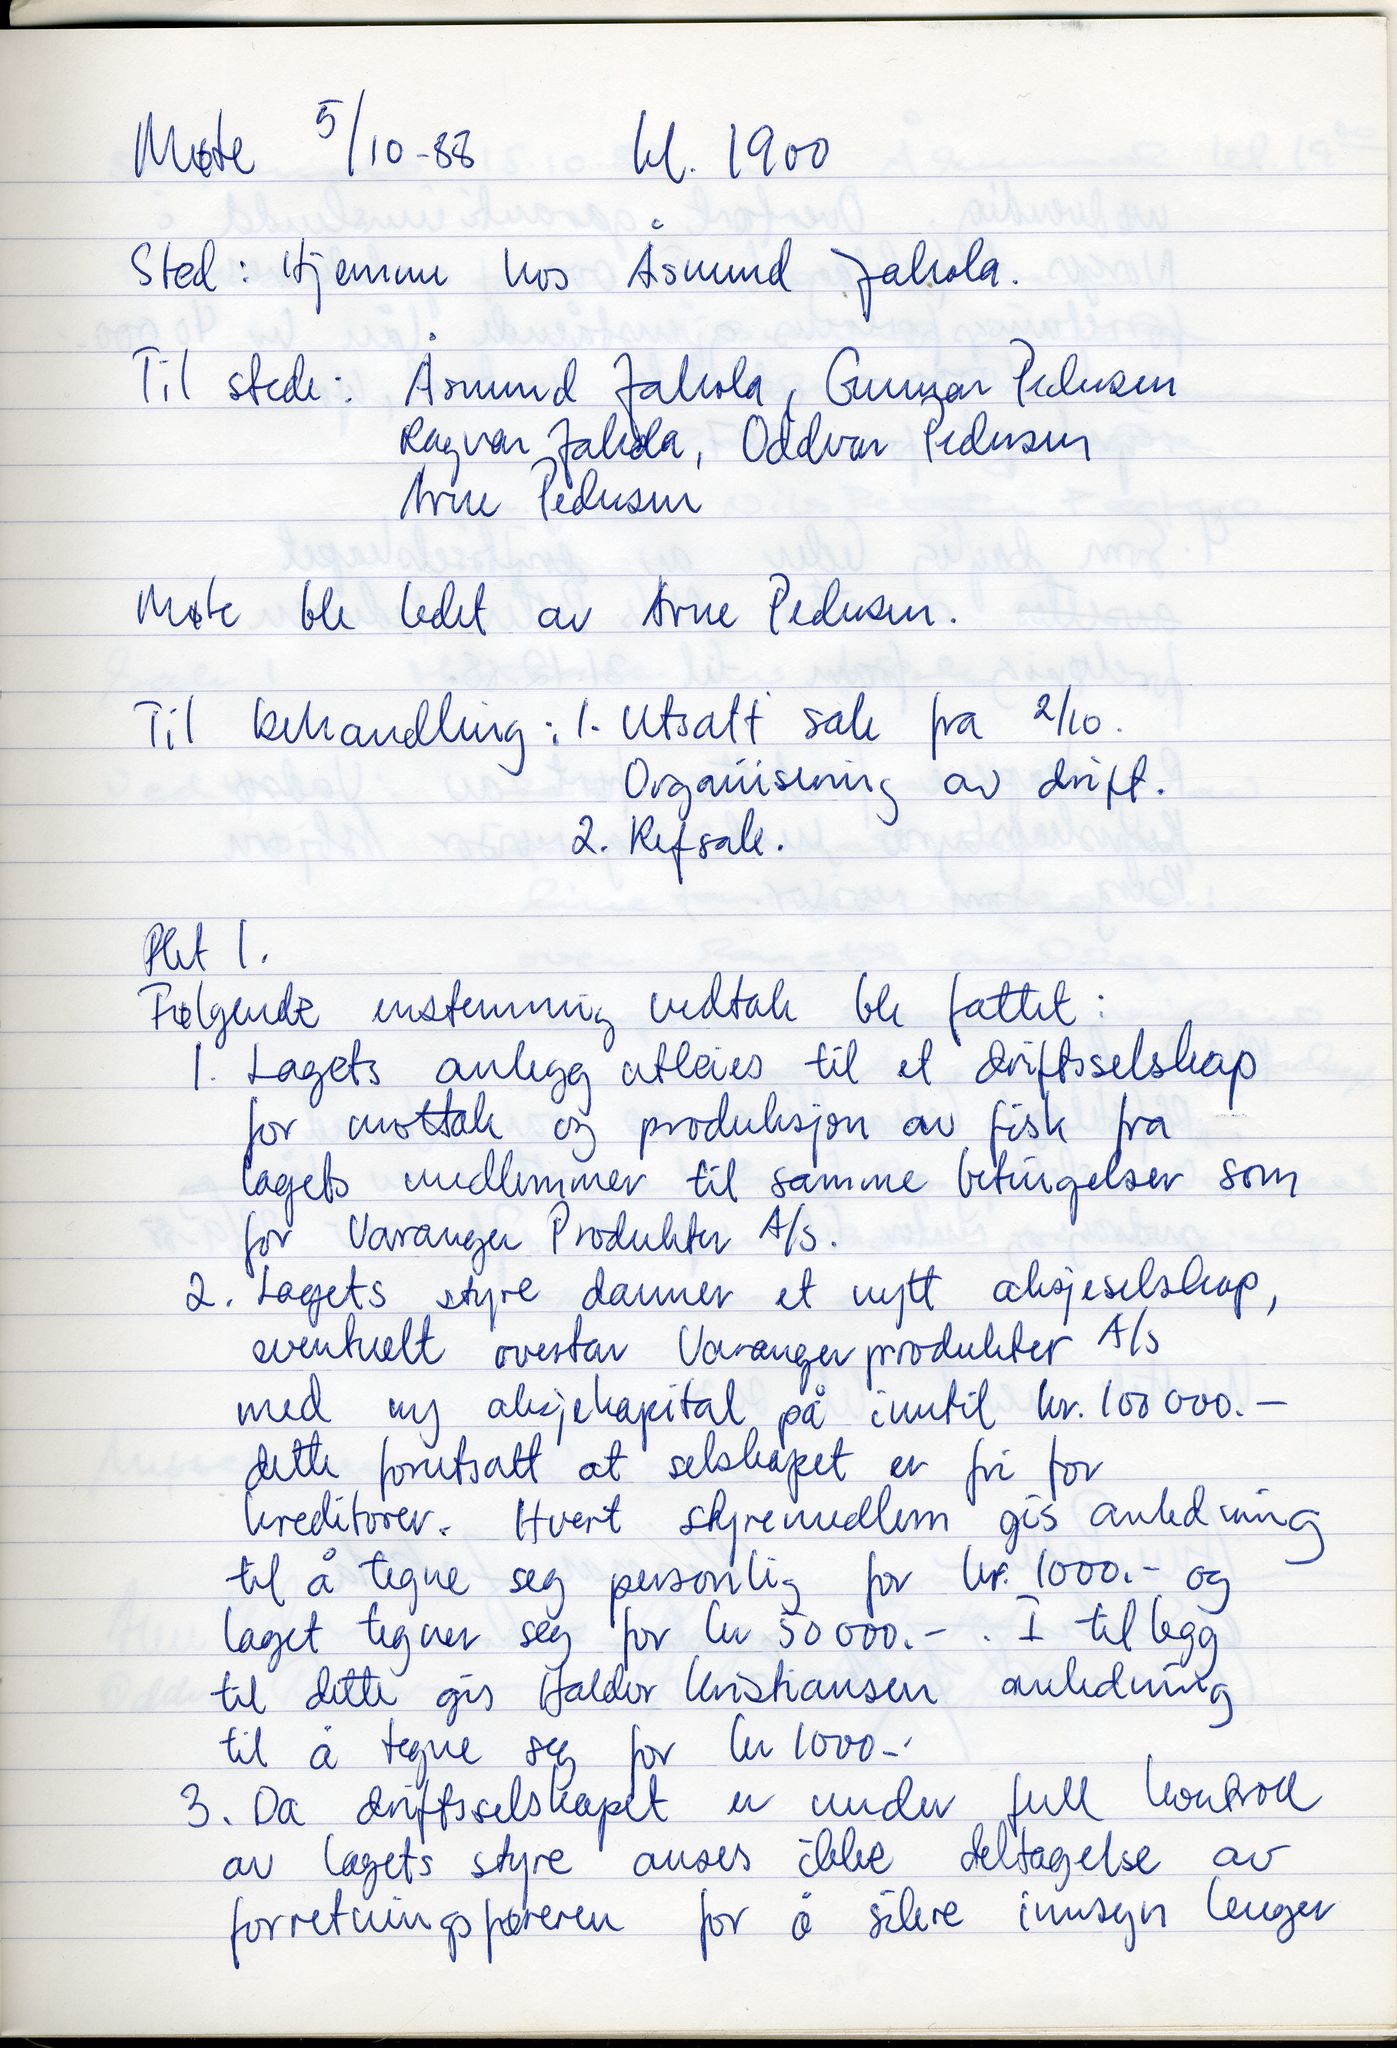 Møte 5/10-88 kl. 1900
Sted: Hjemme hos Åsmund Jakola.
Til stede: Åsmund Jakola, Gunnar Pedersen
Ragnar Jakola, Oddvar Pedersen
Arne Pedersen
Møte ble ledet av Arne Pedersen.
Til behandling: 1. Utsatt sak fra 2/10.
Organisering av drift.
2. Refsak.
Pkt 1.
Følgende enstemmig vedtak ble fattet:
1. Lagets anlegg utleies til et driftsselskap
for mottak og produksjon av fisk fra
lagets medlemmer til samme betingelser som
for Varanger Produkter A/S.
2. Lagets styre danner et nytt aksjeselskap,
eventuelt overtar Varangerprodukter A/S
med ny aksjekapital på inntil kr. 100 000.-
dette forutsatt at selskapet er fri for
kreditorer. Hvert styremedlem gis anledning
til å tegne seg personlig for kr. 1000.- og
laget tegner seg for kr 50 000.- . I tillegg
til dette gis Haldor Kristiansen anledning
til å tegne seg for kr 1000.-
3. Da driftsselskapet er under full kontroll
av lagets styre anses ikke deltagelse av
forretningsføreren for å sikre innsyn lenger